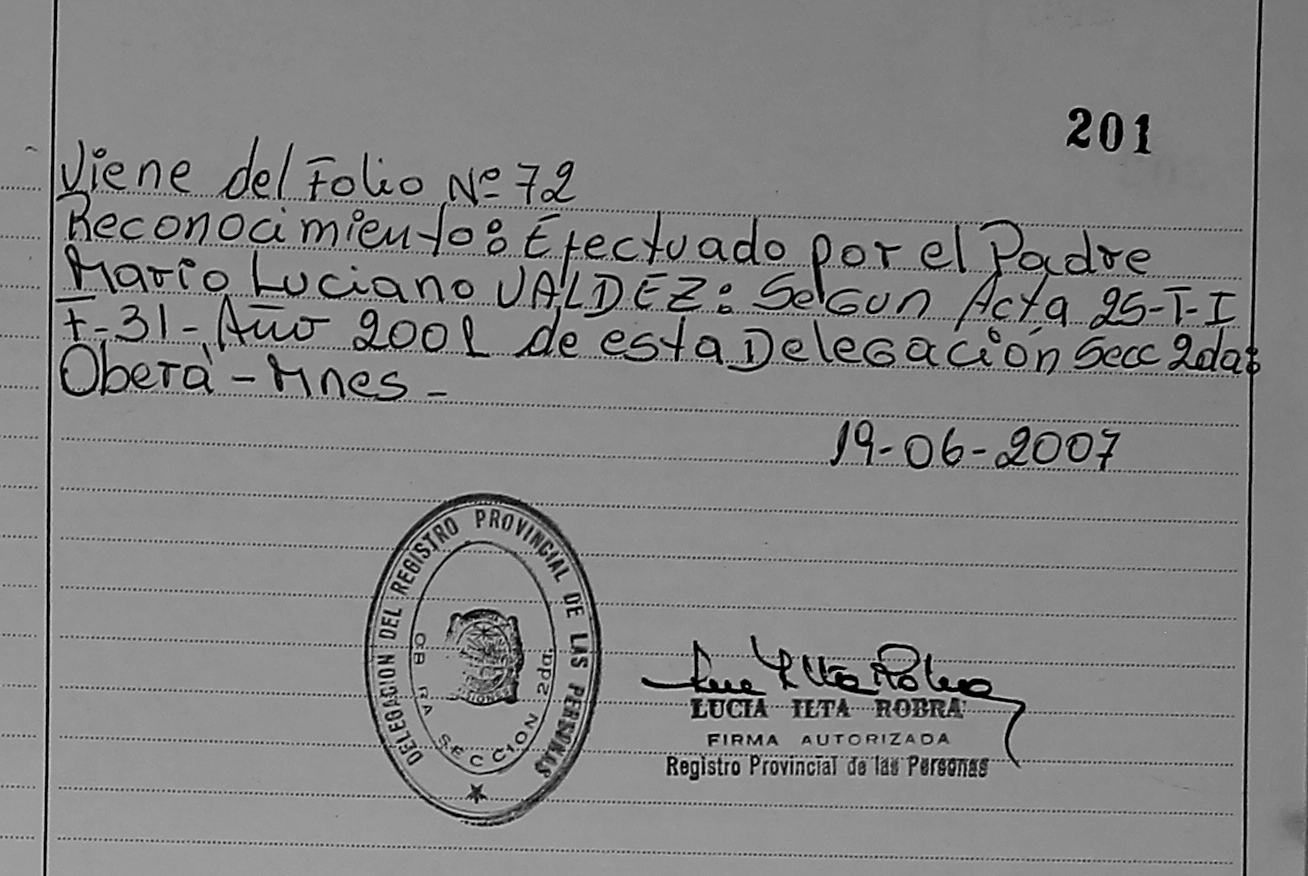 201
Viene del Folio Nº 72
Reconocimiento: Efectuado por el Padre
Mario Luciano VALDEZ: Segun Acta 25-T-I
F-31-Año 2001 de esta Delegación Secc 2da:
Oberá-Mnes-
19-06-2007
DELEGACION DEL REGISTRO PROVINCIAL DE LAS PERSONAS
OB RA SECCION 2da.
LUCIA ILTA ROBRA
FIRMA AUTORIZADA
Registro Provincial de las Personas